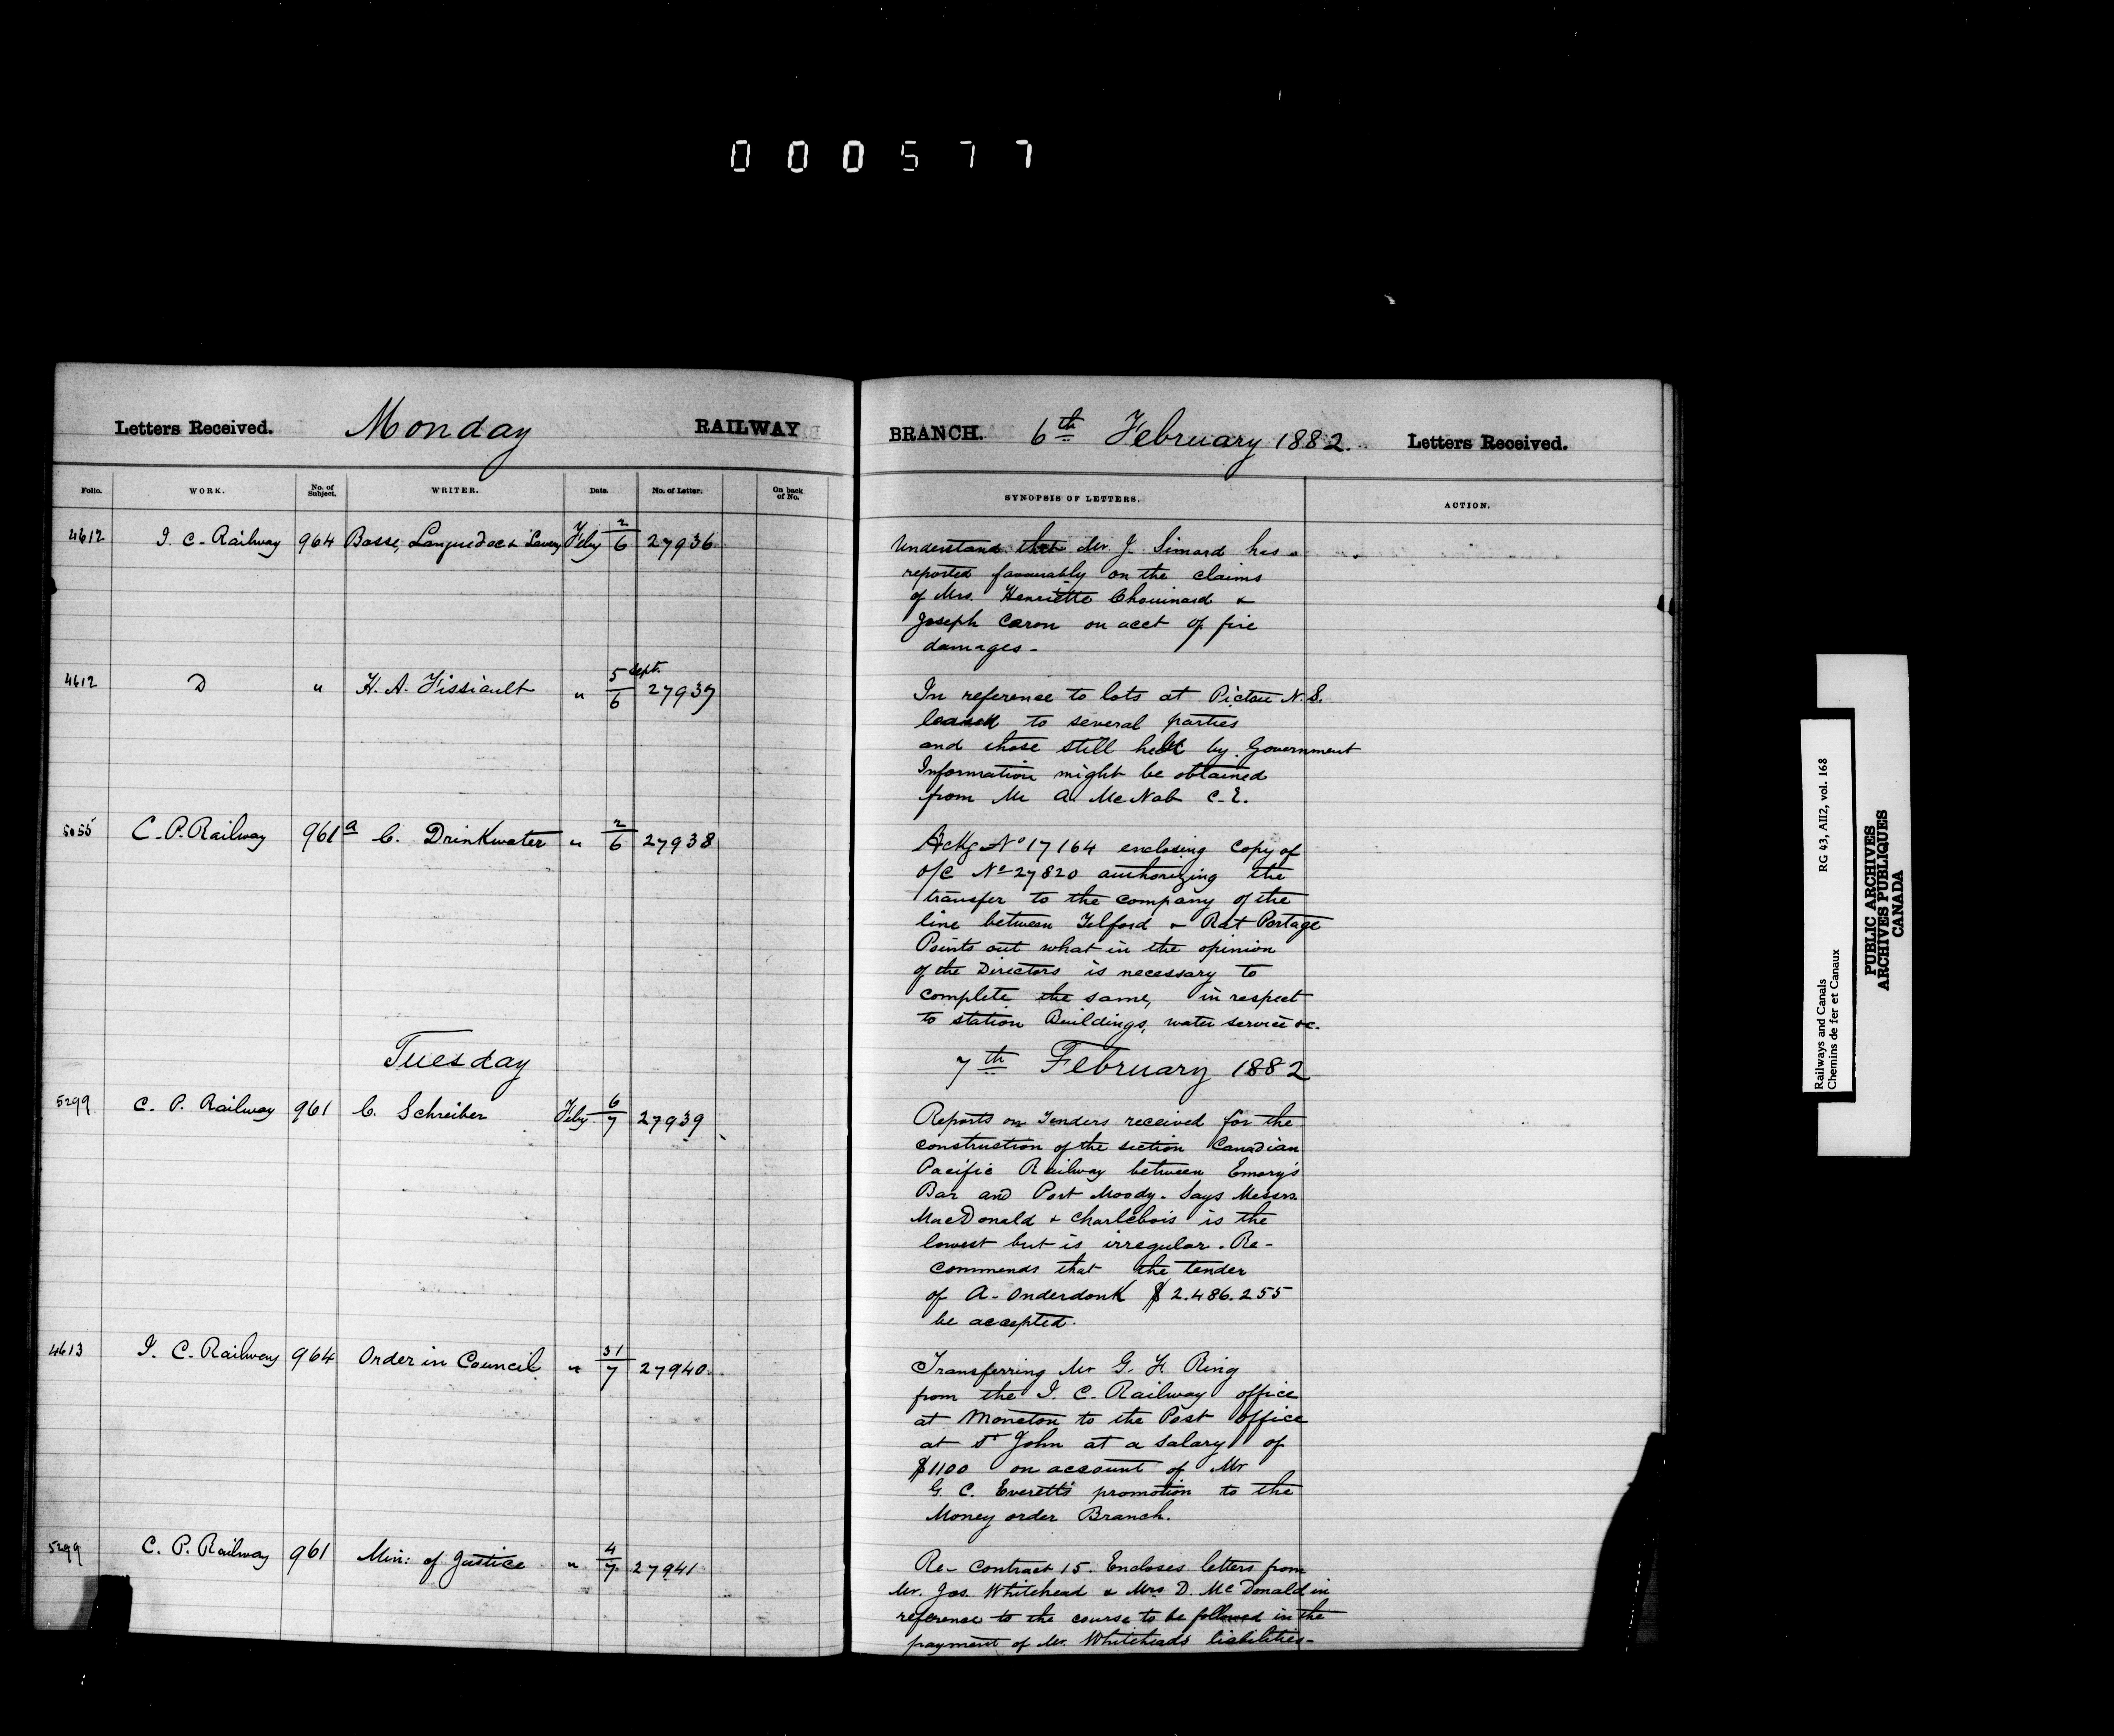 000577
Letters Received. Monday RAILWAY
Folio. WORK. No. of Subject. WRITER. Date. No. of Letter. On back of No.
4612 I. C. Railway 964 Bosse, Languedoc & Feby 2/6 27936
4612 D " H. A. Fissiault " 5 Sept/6 27937
5055 C. P. Railway 961a C. Drinkwater " 2/6 27938
Tuesday
5299 C. P. Railway 961 C. Schreiber Feby 6/7 27939
4613 I. C. Railway 964 Order in Council " 31/7 27940
5299 C. P. Railway 961 Min: of Justice " 4/7 27941
BRANCH. 6th February 1882. Letters Received.
SYNOPSIS OF LETTERS. ACTION.
Understand that Mr. J. Simard has
reported favourably on the claims
of Mrs. Henriette Chouinard &
Joseph Caron on acct of fire
damages -
In reference to lots at Pictou N.S.
leased to several parties
and those still held by Government
Information might be obtained
from Mr A. McNab C.E.
Ackg No 17164 enclosing Copy of
O/C No 27820 authorizing the
transfer to the company of the
line between Telford & Rat Portage
Points out what in the opinion
of the Directors is necessary to
complete the same, in respect
to station Buildings, water service &c.
7th February 1882
Reports on Tenders received for the
construction of the section Canadian
Pacific Railway between Emory's
Bar and Port Moody. Says Messrs.
MacDonald & Charlebois is the
lowest but is irregular. Re-
commends that the tender
of A. Onderdonk $2.486.255
be accepted.
Transferring Mr G. F. Ring
from the I. C. Railway office
at Moncton to the Post office
at St John at a salary of
$1100 on account of Mr
G. C. Everett's promotion to the
Money order Branch.
Re- Contract 15. Encloses letters from
Mr. Jos. Whitehead & Mrs D. McDonald in
reference to the course to be followed in the
payment of Mr. Whiteheads liabilities-
Railways and Canals RG 43, AII2, vol. 168
Chemins de fer et Canaux
PUBLIC ARCHIVES
ARCHIVES PUBLIQUES
CANADA